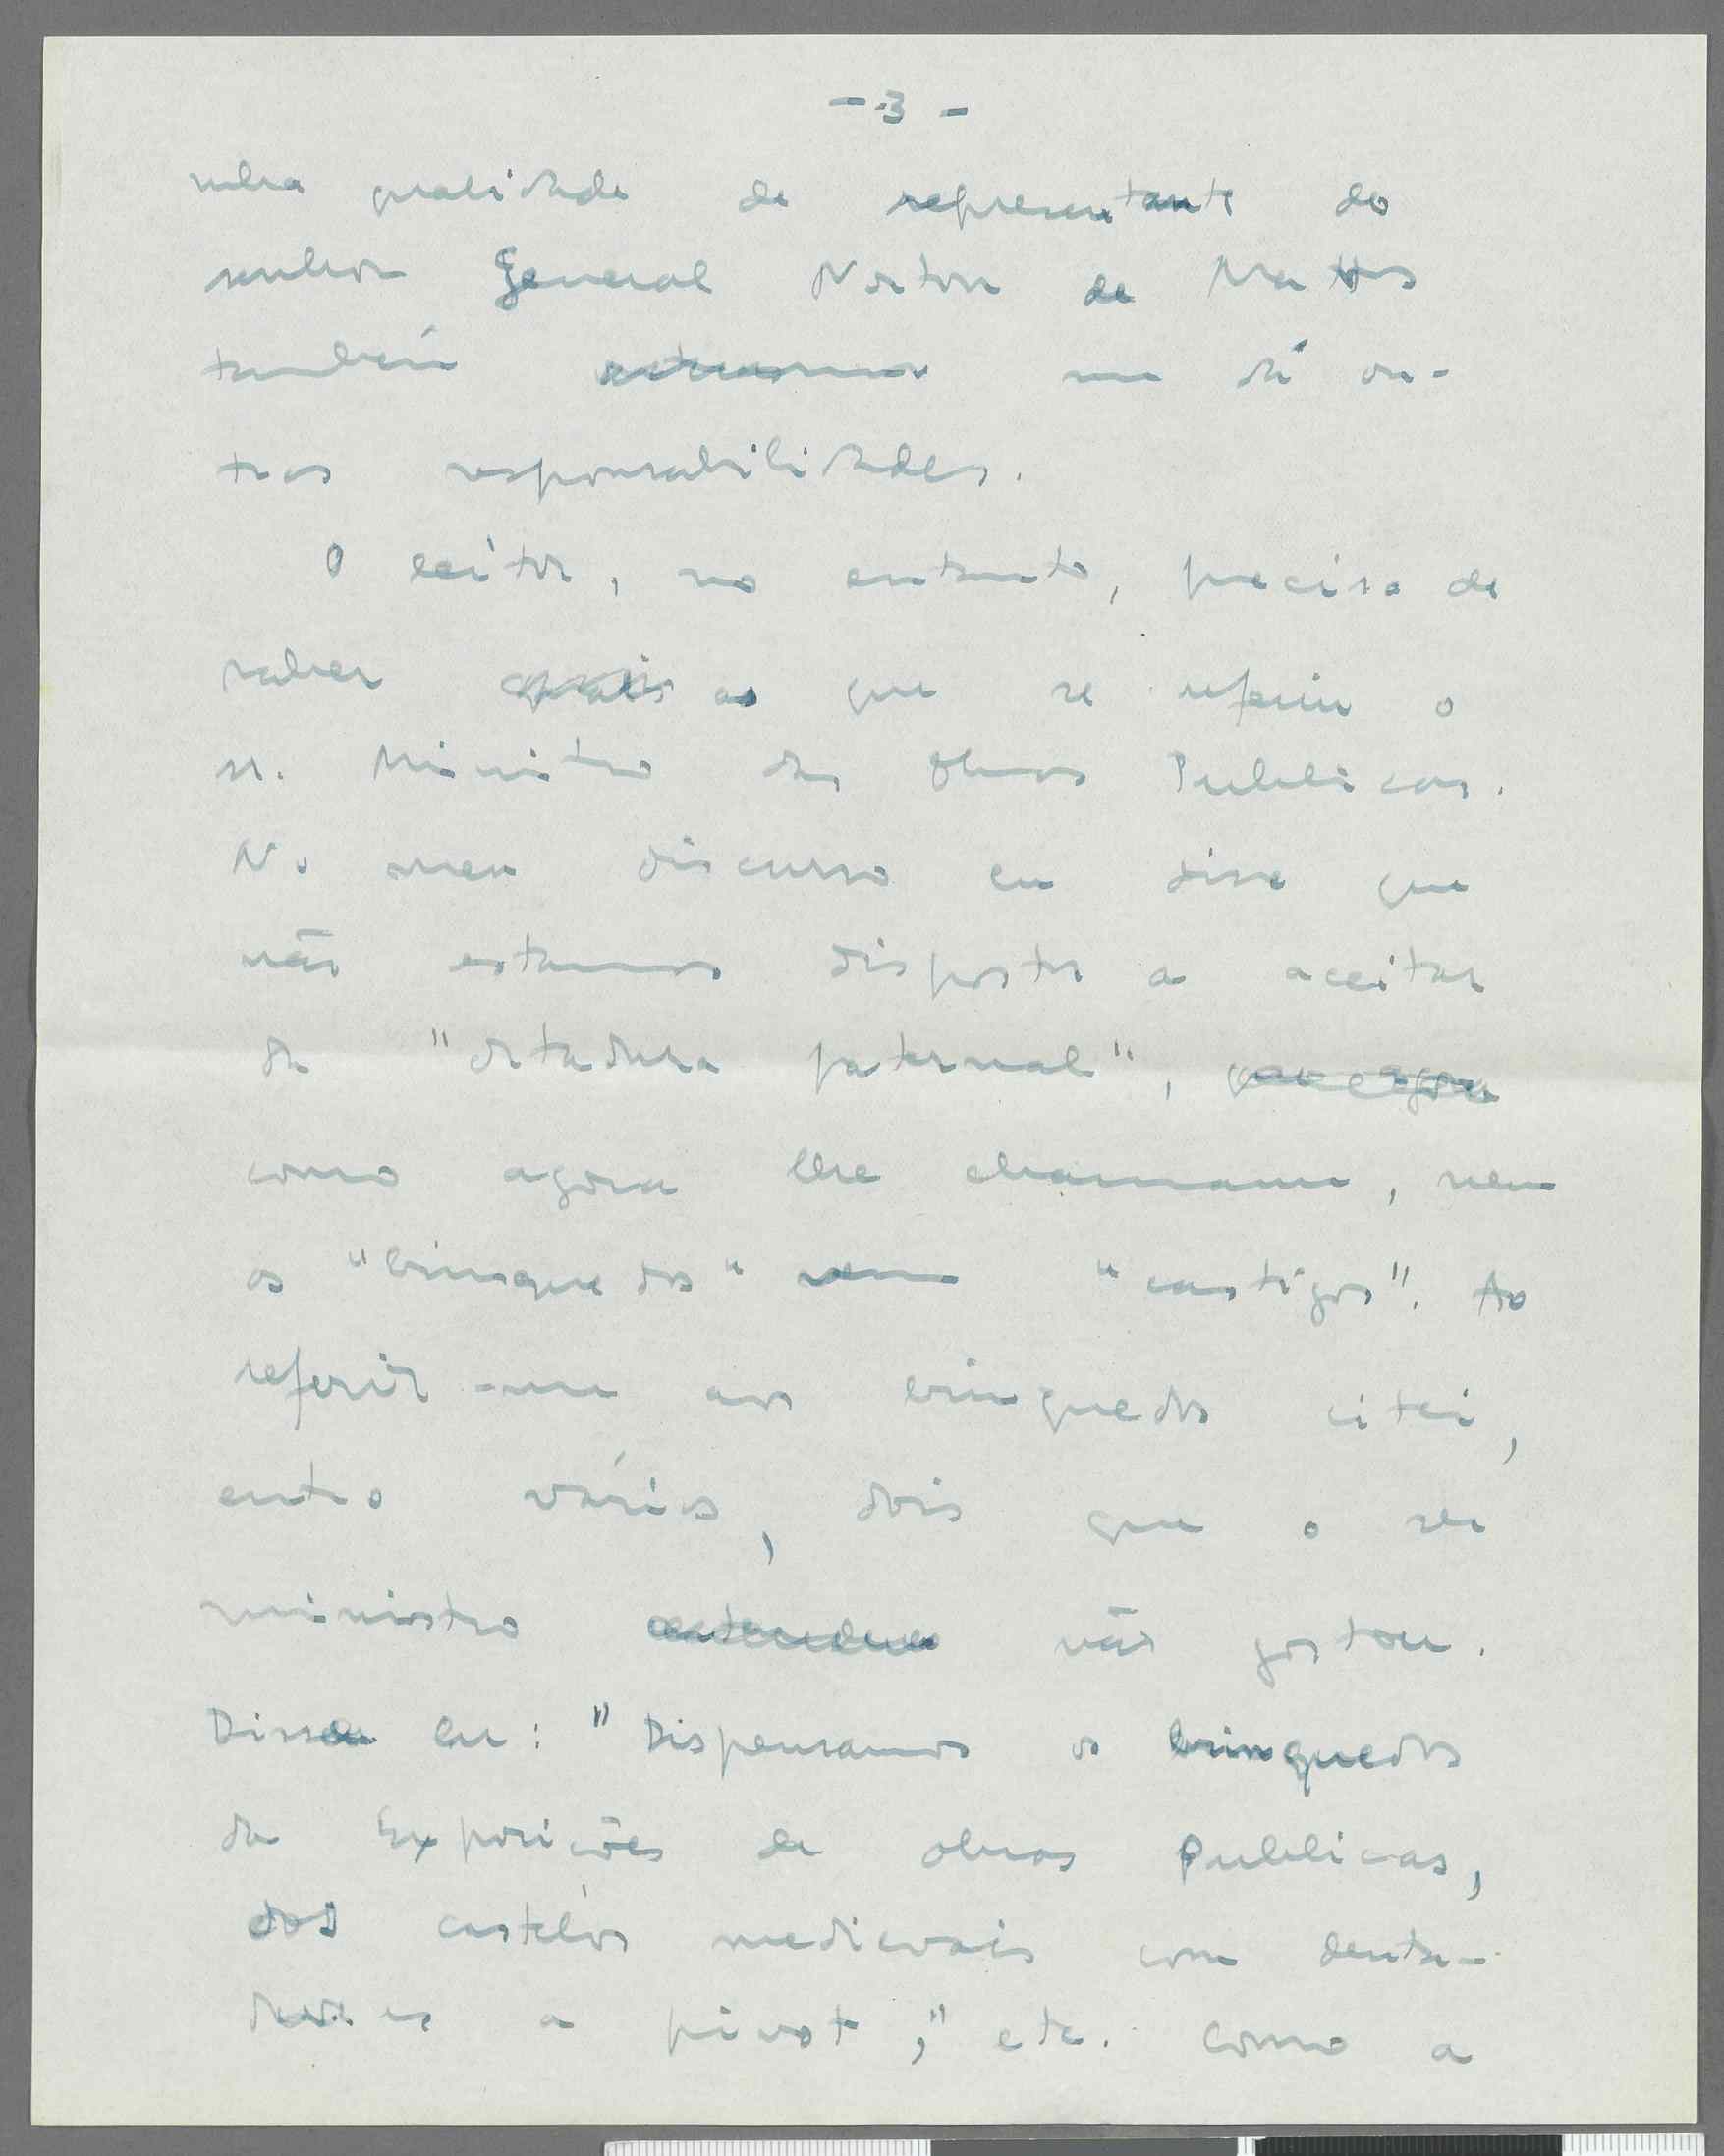 - 3 -
nha qualidade de representante do
senhor General Norton de Mattos
também me dá ou-
tras responsabilidades.
O leitor, no entanto, precisa de
saber ao que se referiu o
sr. Ministro das Obras Publicas.
No meu discurso eu disse que
não estamos dispostos a aceitar
da "ditadura paternal", que agora
como agora lhe chamam, nem
os "brinquedos" nem "castigos". Ao
referir-me aos brinquedos citei,
entre vários, dois que o sr
ministro entendeu não gostou.
Disse eu: "Dispensamos os brinquedos
da Exposições de obras Publicas,
dos castelos medievais com denta-
duras a pivot," etc. Como a